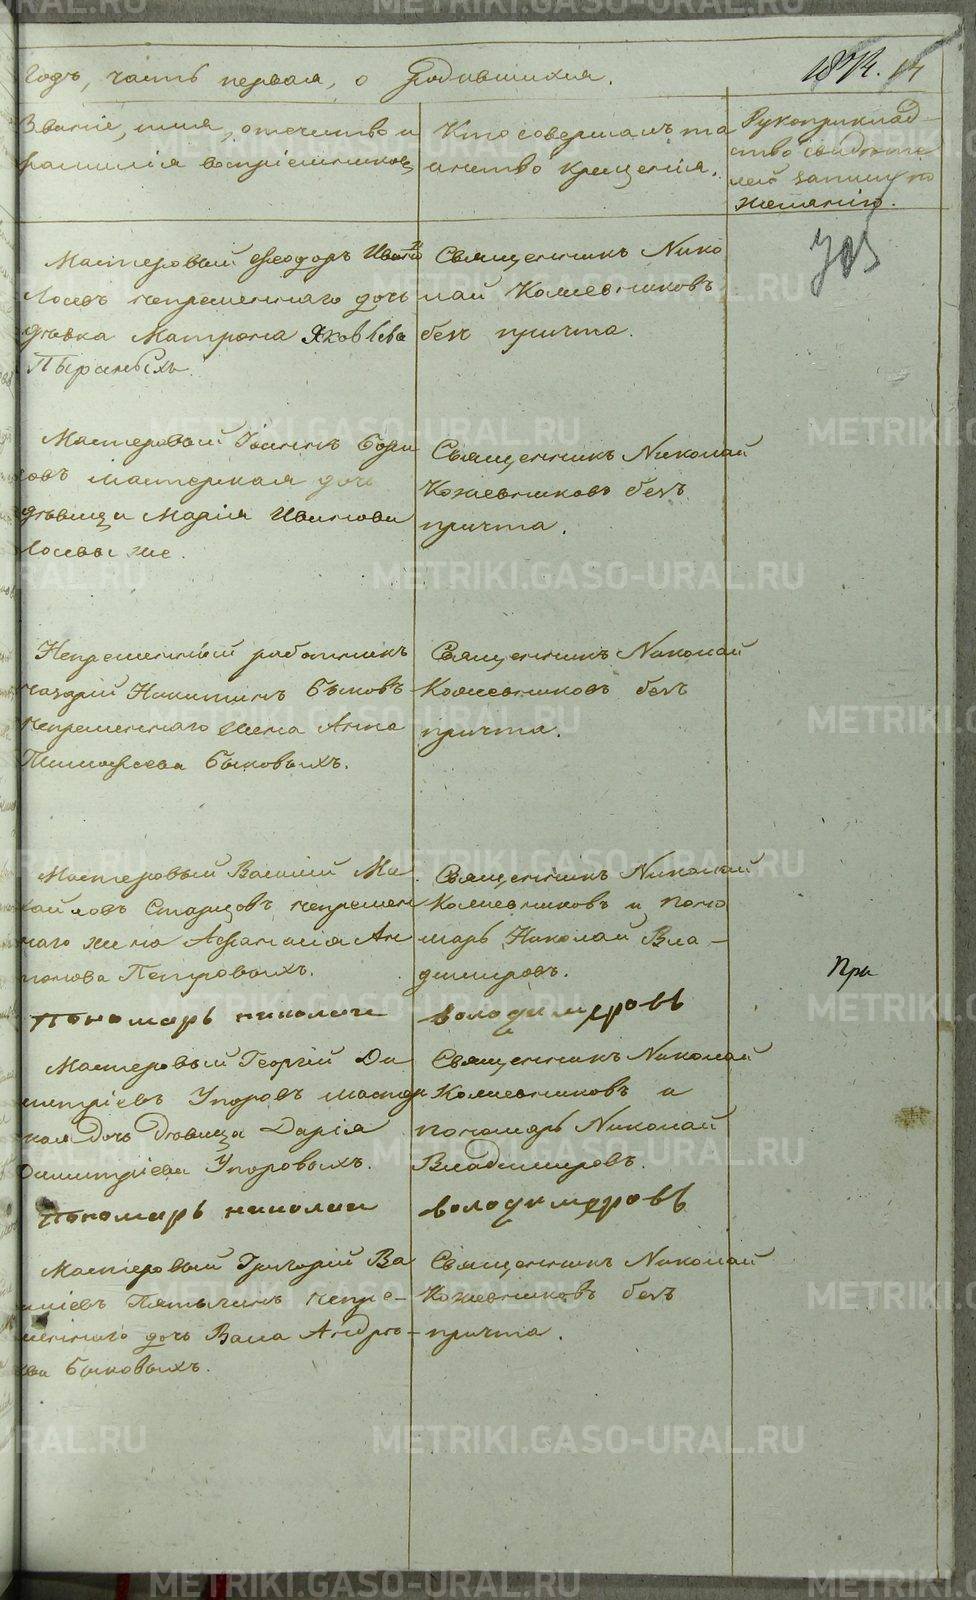 годъ, часть первая, о родившихся.
Званіе, имя, отчество и
фамилія воспріемниковъ
Кто совершалъ та
инство крещенія.
Рукоприклад
ство свидѣте
лей записи по
желанію.
Мастеровый Феодоръ Ивано
Лосевъ непремѣннаго дочь
дѣвка Матрона Яковлева
Пыраныхъ
Священникъ Нико
лай Кожевниковъ
безъ причта.
Мастеровый Іоаннъ Бори
совъ мастерская дочь
дѣвица Марія Иванова
Лосевы же.
Священникъ Николай
Кожевниковъ безъ
причта.
Непремѣнный работникъ
Назарій Никитинъ Быковъ
непремѣннаго жена Анна
Тимофеева Быковыхъ.
Священникъ Николай
Кожевниковъ безъ
причта.
Мастеровый Василій Ми
хайловъ Старцовъ непремѣн
наго жена Афанасія Ан
тонова Петровыхъ.
Священникъ Николай
Кожевниковъ и поно
марь Николай Вла-
диміровъ.
При
пономарь николаи володимеровъ
Мастеровый Георгій Ди
митріевъ Упоровъ мастер
ская дочь дѣвица Дарія
Димитріева Упоровыхъ.
Священникъ Николай
Кожевниковъ и
пономарь Николай
Владимировъ.
пономарь николаи володимеровъ
Мастеровый Григорій Ва
силіевъ Пятычинъ непре-
мѣннаго дочь Васа Андрѣ-
ева Быковыхъ.
Священникъ Николай
Кожевниковъ безъ
причта.
METRIKI.GASO-URAL.RU